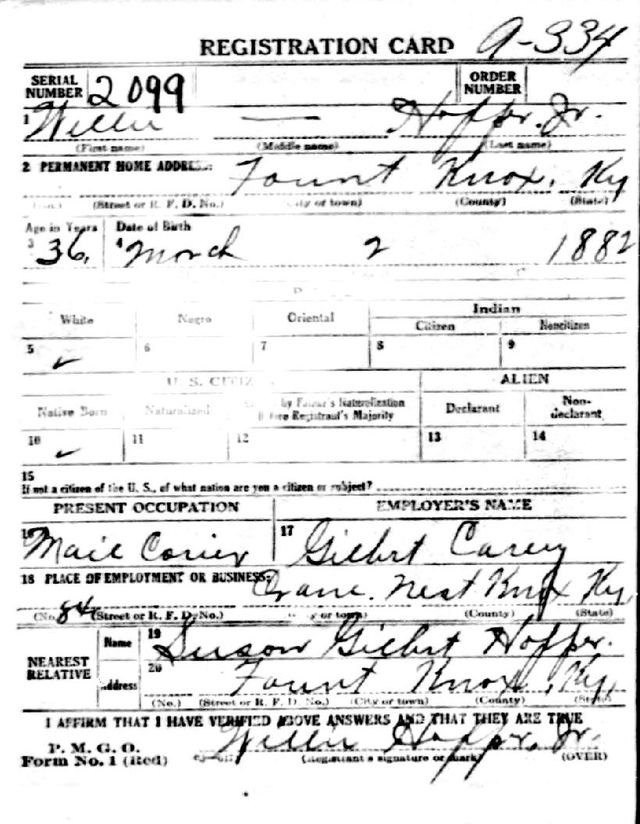 REGISTRATION CARD A-334
SERIAL NUMBER 2099 ORDER NUMBER
1 Willie — Hopper. Jr.
(First name) (Middle name) (Last name)
2 PERMANENT HOME ADDRESS: Fount Knox, Ky
(No.) (Street or R. F. D. No.) (City or town) (County) (State)
Age in Years Date of Birth
3 36, 4 March 2 1882
White Negro Oriental Indian
Citizen Noncitizen
5 ✓ 6 7 8 9
U. S. CITIZ ALIEN
Native Born Naturalized by Father's Naturalization Before Registrant's Majority Declarant Non-declarant
10 ✓ 11 12 13 14
15
If not a citizen of the U. S., of what nation are you a citizen or subject?
PRESENT OCCUPATION EMPLOYER'S NAME
16 Mail Carier 17 Gilbert Carey
18 PLACE OF EMPLOYMENT OR BUSINESS: Crane Nest Knox Ky,
(No.) 84 (Street or R. F. D. No.) (City or town) (County) (State)
NEAREST RELATIVE
Name 19 Suson Gilbert Hopper.
Address 20 Fount Knox, Ky,
(No.) (Street or R. F. D. No.) (City or town) (County) (State)
I AFFIRM THAT I HAVE VERIFIED ABOVE ANSWERS AND THAT THEY ARE TRUE
P. M. G. O.
Form No. 1 (Red) Willie Hopper, Jr.
(Registrant's signature or mark) (OVER)